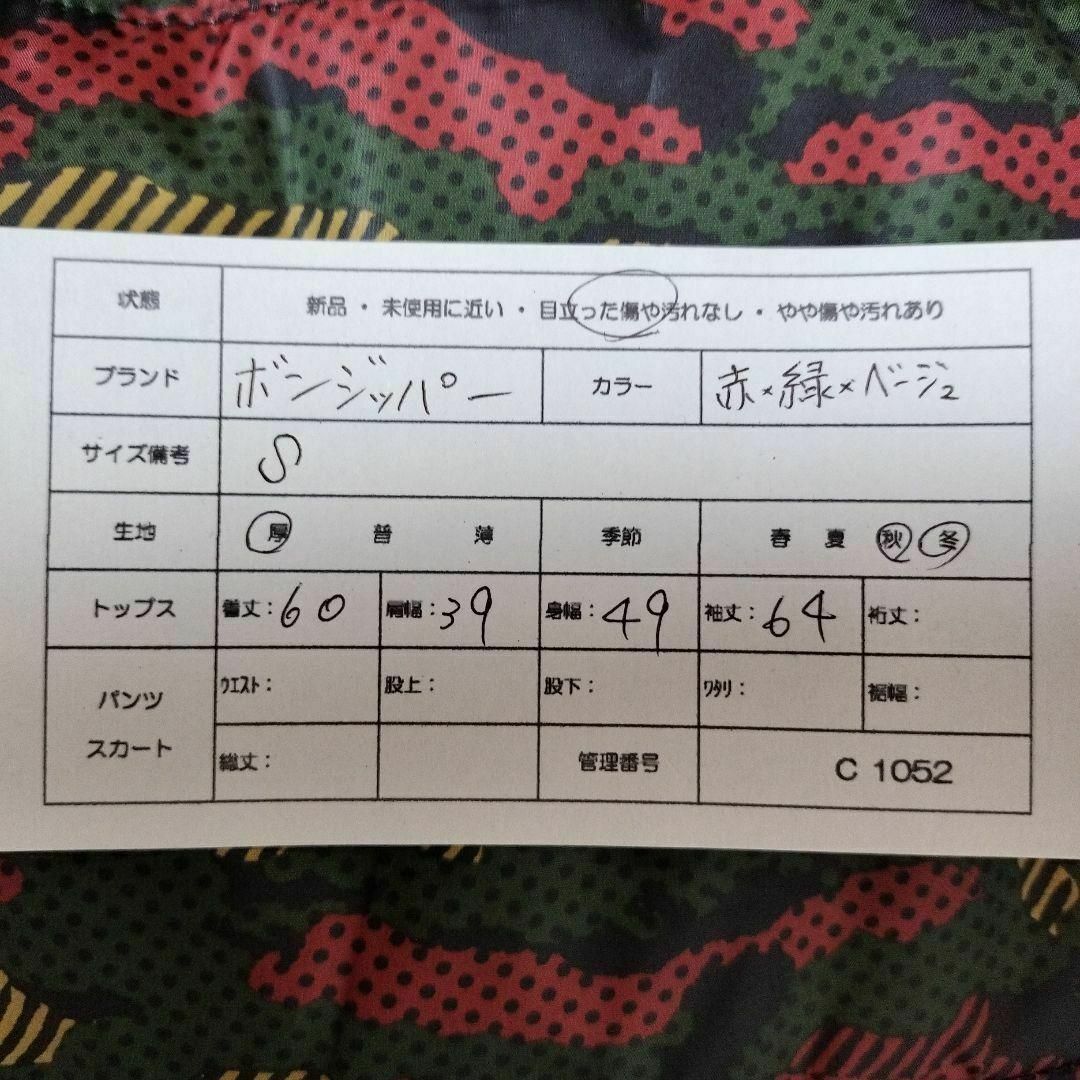 状態 新品 ・ 未使用に近い ・ 目立った傷や汚れなし ・ やや傷や汚れあり
ブランド ボンジッパー カラー 赤×緑×ベージュ
サイズ備考 S
生地 厚 普 薄 季節 春 夏 秋 冬
トップス 着丈：60 肩幅：39 身幅：49 袖丈：64 裄丈：
パンツ スカート ウエスト： 股上： 股下： ワタリ： 裾幅：
総丈： 管理番号 C 1052